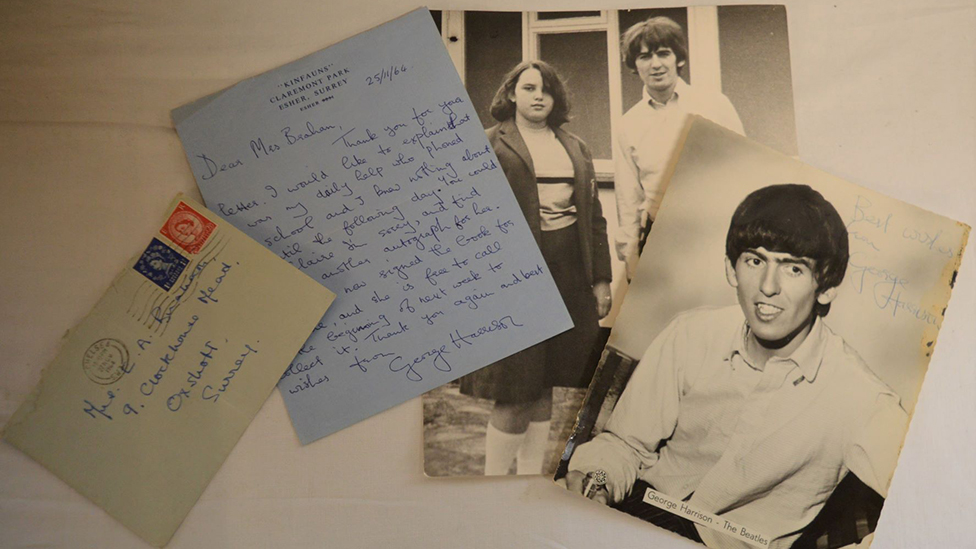 "KINFAUNS"
CLAREMONT PARK
ESHER, SURREY
ESHER
25/11/64
Dear Mrs Beahan,
Thank you for your
letter. I would like to explain that
was my daily help who phoned
school and I knew nothing about
until the following day. You could
laire I'm sorry, and find
another autograph for her.
now signed the book for
and she is free to call
beginning of next week to
llect it. Thank you again and best
wishes from
George Harrison
CHELSEA
Mrs. E. A. Beahan
9. Clockhouse Mead
Oxshott,
Surrey.
Best wishes
from
George
Harrison
George Harrison - The Beatles